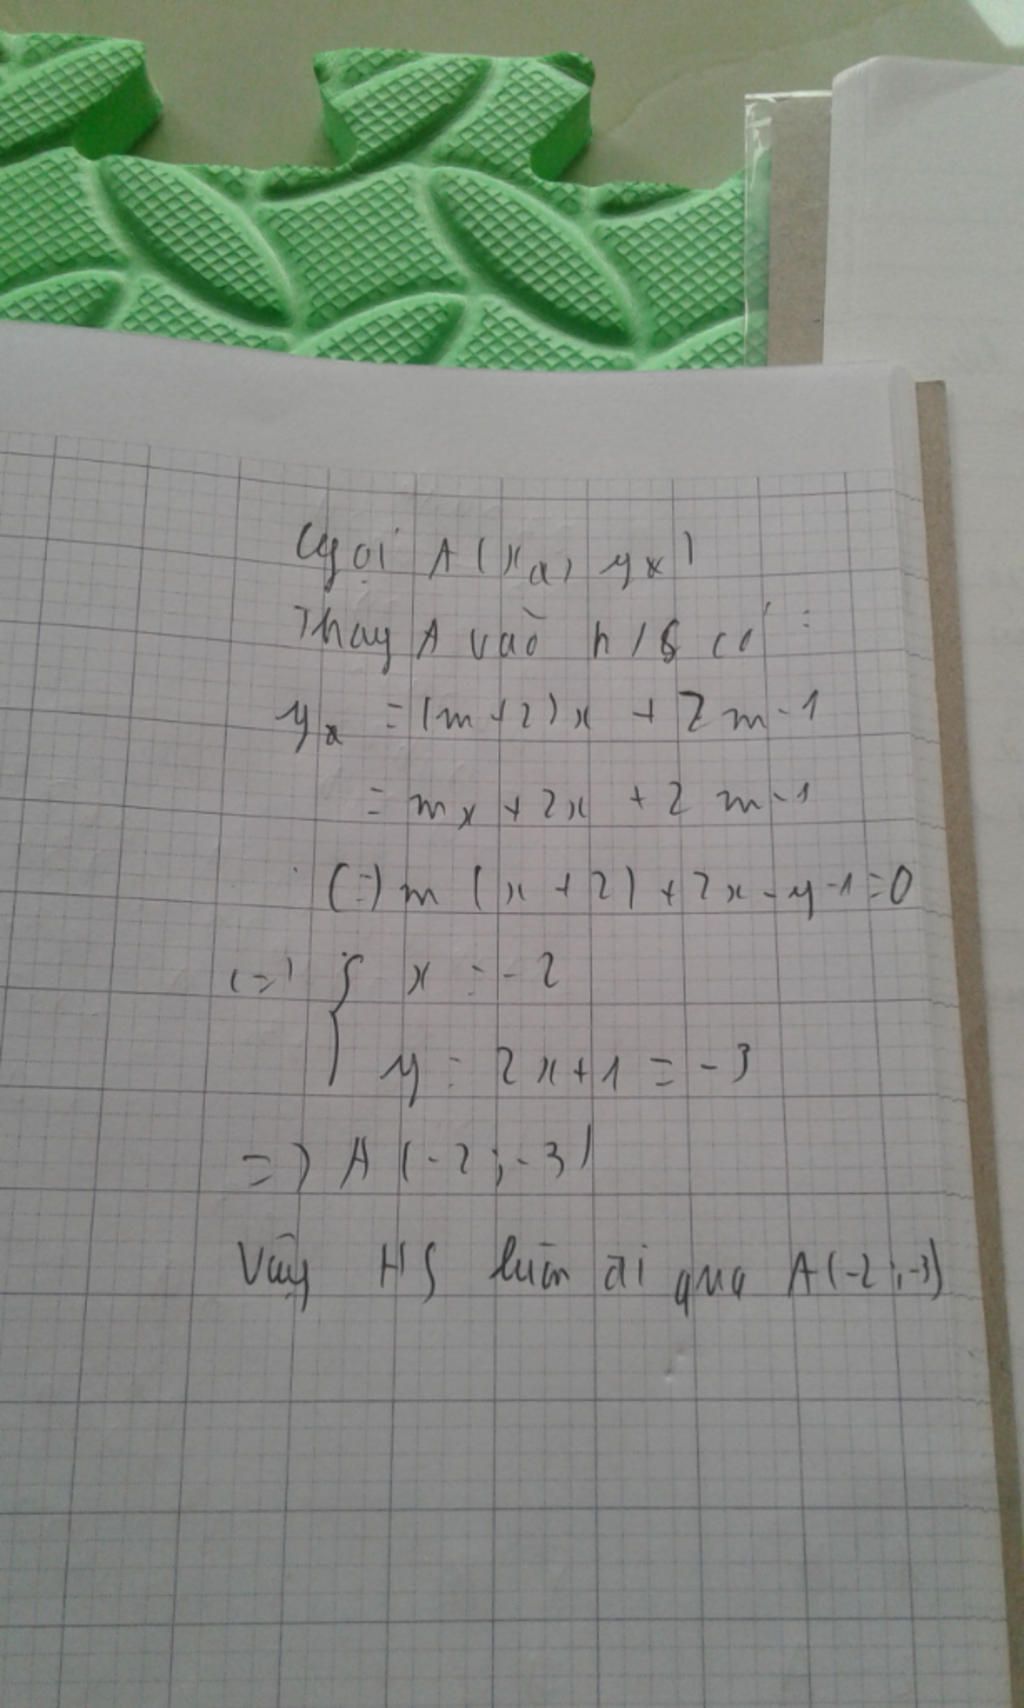 Gọi A(xa, yx)
Thay A vào h/s có :
yx = (m+2)x + 2m-1
= mx + 2x + 2m-1
(=) m(x+2) + 2x-y-1=0
(=) { x = -2
y = 2x+1 = -3
=) A(-2;-3)
Vậy HS luôn đi qua A(-2;-3)